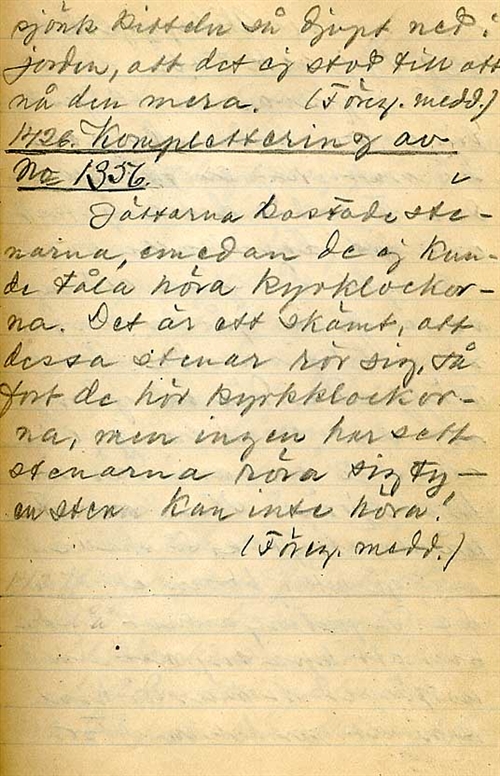 sjönk kitteln så djupt ned i
jorden, att det ej stod till att
nå den mera. (Föreg. medd.)
1426. Komplettering av
No 1356.
Jättarna kastade ste-
narna, emedan de ej kun-
de tåla höra kyrklockor-
na. Det är ett skämt, att
dessa stenar rör sig, så
fort de hör kyrkklockor-
na, men ingen har sett
stenarna röra sig ty –
en sten kan inte höra!
(Föreg. medd.)